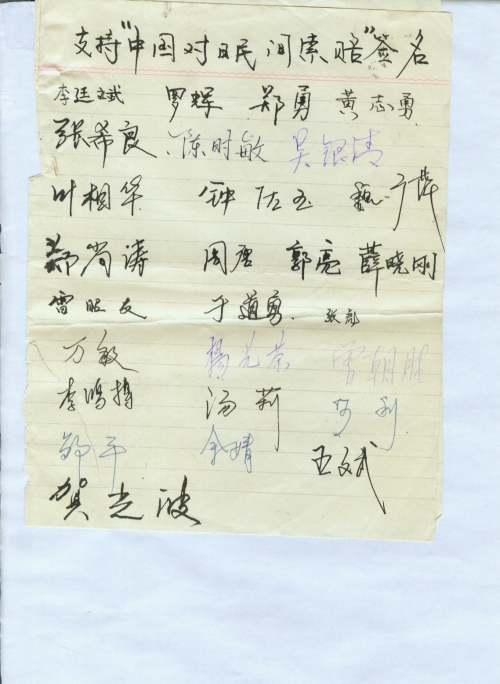 支持"中国对日民间索赔"签名
李廷斌 罗辉 郑勇 黄志勇
张希良 陈时敏 吴银清
叶相华 钟佐玉
郑尚涛 周唐 郭亮 薛晓刚
雷旺友 于道勇 张彪
万敏 杨光荣 曾朝胜
李鸿博 汤莉
邹平 余晴 王斌
贺光波